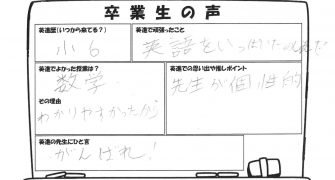 卒業生の声
英進歴(いつから来てる?)
小6
英進で頑張ったこと
英語をいっぱい
英進でよかった授業は?
数学
その理由
わかりやすかったから
英進での思い出や推しポイント
先生が個性的
英進の先生にひと言
がんばれ!